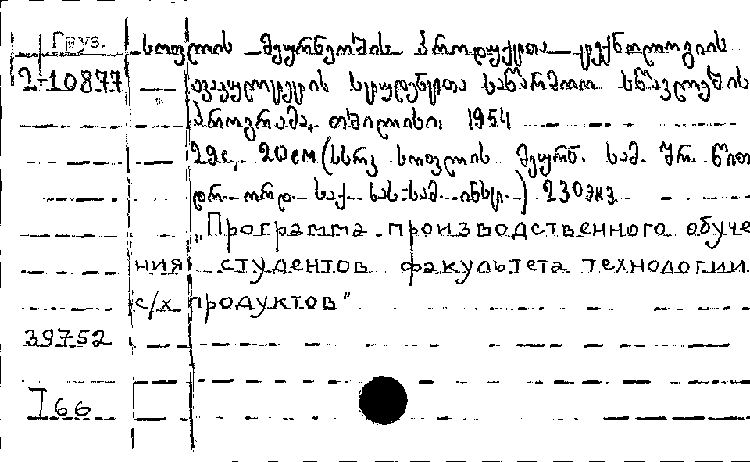 Груз. სოფლის მეურნეობის პროდუქტთა ტექნოლოგიის
2-10877 ფაკულტეტის სტუდენტთა საწარმოო სწავლების
პროგრამა. თბილისი. 1954
22с, 20см (სსრკ სოფლის მეურნ. სამ. შრ. წით.
დრ. ორდ. საქ. სას.-სამ. ინსტ.) 230 экз.
„Программа производственного обуче
ния студентов факультета технологии
с/х продуктов"
39752
I 66